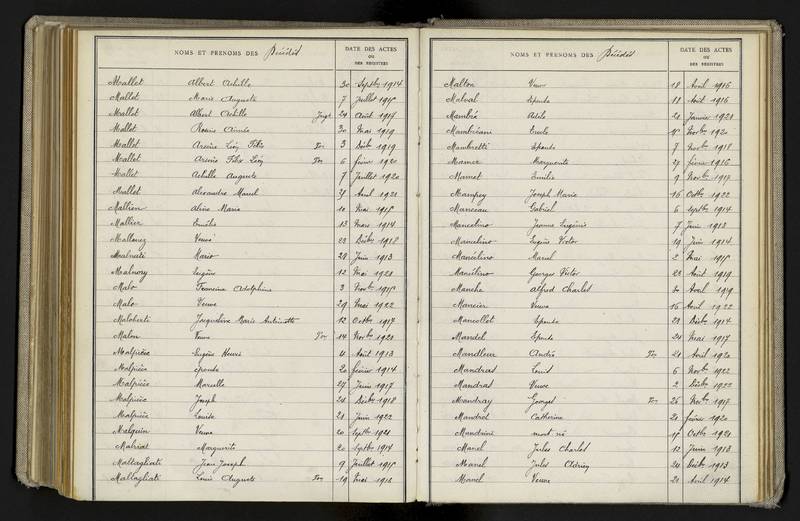 NOMS ET PRENOMS DES Décédés
DATE DES ACTES
OU
DES REGISTRES
Mallet Albert Achille 30 Septbre 1914
Mallet Marie Auguste 7 Juillet 1915
Mallet Albert Achille Jugt 24 Août 1917
Mallet Rosine Aimée 30 Mai 1919
Mallet Arsène Léon Félix Ton 3 Débr 1919
Mallet Arsène Félix Léon Ton 6 février 1920
Mallet Achille Auguste 7 Juillet 1920
Mallet Alexandre Marcel Avril 1921
Mallien Aline Marie 10 Mai 1918
Mallier Emélie 13 Mars 1914
Veuve 22 Débre 1918
Malnati Mario 29 Juin 1913
Malnory Eugène 12 Mai 1921
Malo Francine Adolphine 3 Novbre 1915
Malo Veuve 29 Mai 1922
Maloberti Jacqueline Marie Antoinette 12 Octbre 1917
Malon Veuve Ton 14 Novbre 1920
Malpièce Eugène Henri 4 Août 1913
Malpièce épouse 20 février 1914
Malpièce Marcelle 27 Juin 1917
Malpièce Joseph 24 Débre 1918
Malpièce Louise 21 Juin 1922
Malquin Veuve 20 Septbre 1921
Marguerite 20 Septbre 1914
Maltagliati Jean Joseph 9 Juillet 1915
Maltagliati Louis Auguste Ton 19 Mai 1913
NOMS ET PRENOMS DES Décédés
DATE DES ACTES
OU
DES REGISTRES
Malton Veuve 18 Avril 1916
Malval épouse 11 Août 1916
Mambré Adèle 21 Janvier 1921
Emile 15 Novbre 1920
Mambretti épouse 7 Novbre 1918
Mamer Marguerite février 1916
Mamet Emilie 9 Novbre 1917
Mampey Joseph Marie 16 Octbre 1922
Manceau Gabriel 6 Septbre 1914
Mancelino Jeanne Eugénie 7 Juin 1913
Mancelino Eugène Victor 19 Juin 1914
Mancelino Marcel 2 Mai 1915
Mancelino Georges Victor 22 Août 1919
Manche Alfred Charles Avril 1919
Mancier Veuve 16 Avril 1922
Mancollet épouse 29 Débre 1914
Mandel épouse 24 Mai 1917
Mandleur André Ton 21 Avril 1920
Mandras Louis 6 Novbre 1922
Mandras Veuve 2 Débre 1922
Mandray Georges Ton 26 Novbre 1917
Mandret Catherine 21 février 1920
Mandrini mort né 15 Octbre 1921
Manel Jules Charles 12 Juin 1913
Manel Jules Adrien 24 Débre 1913
Manel Veuve 21 Avril 1914